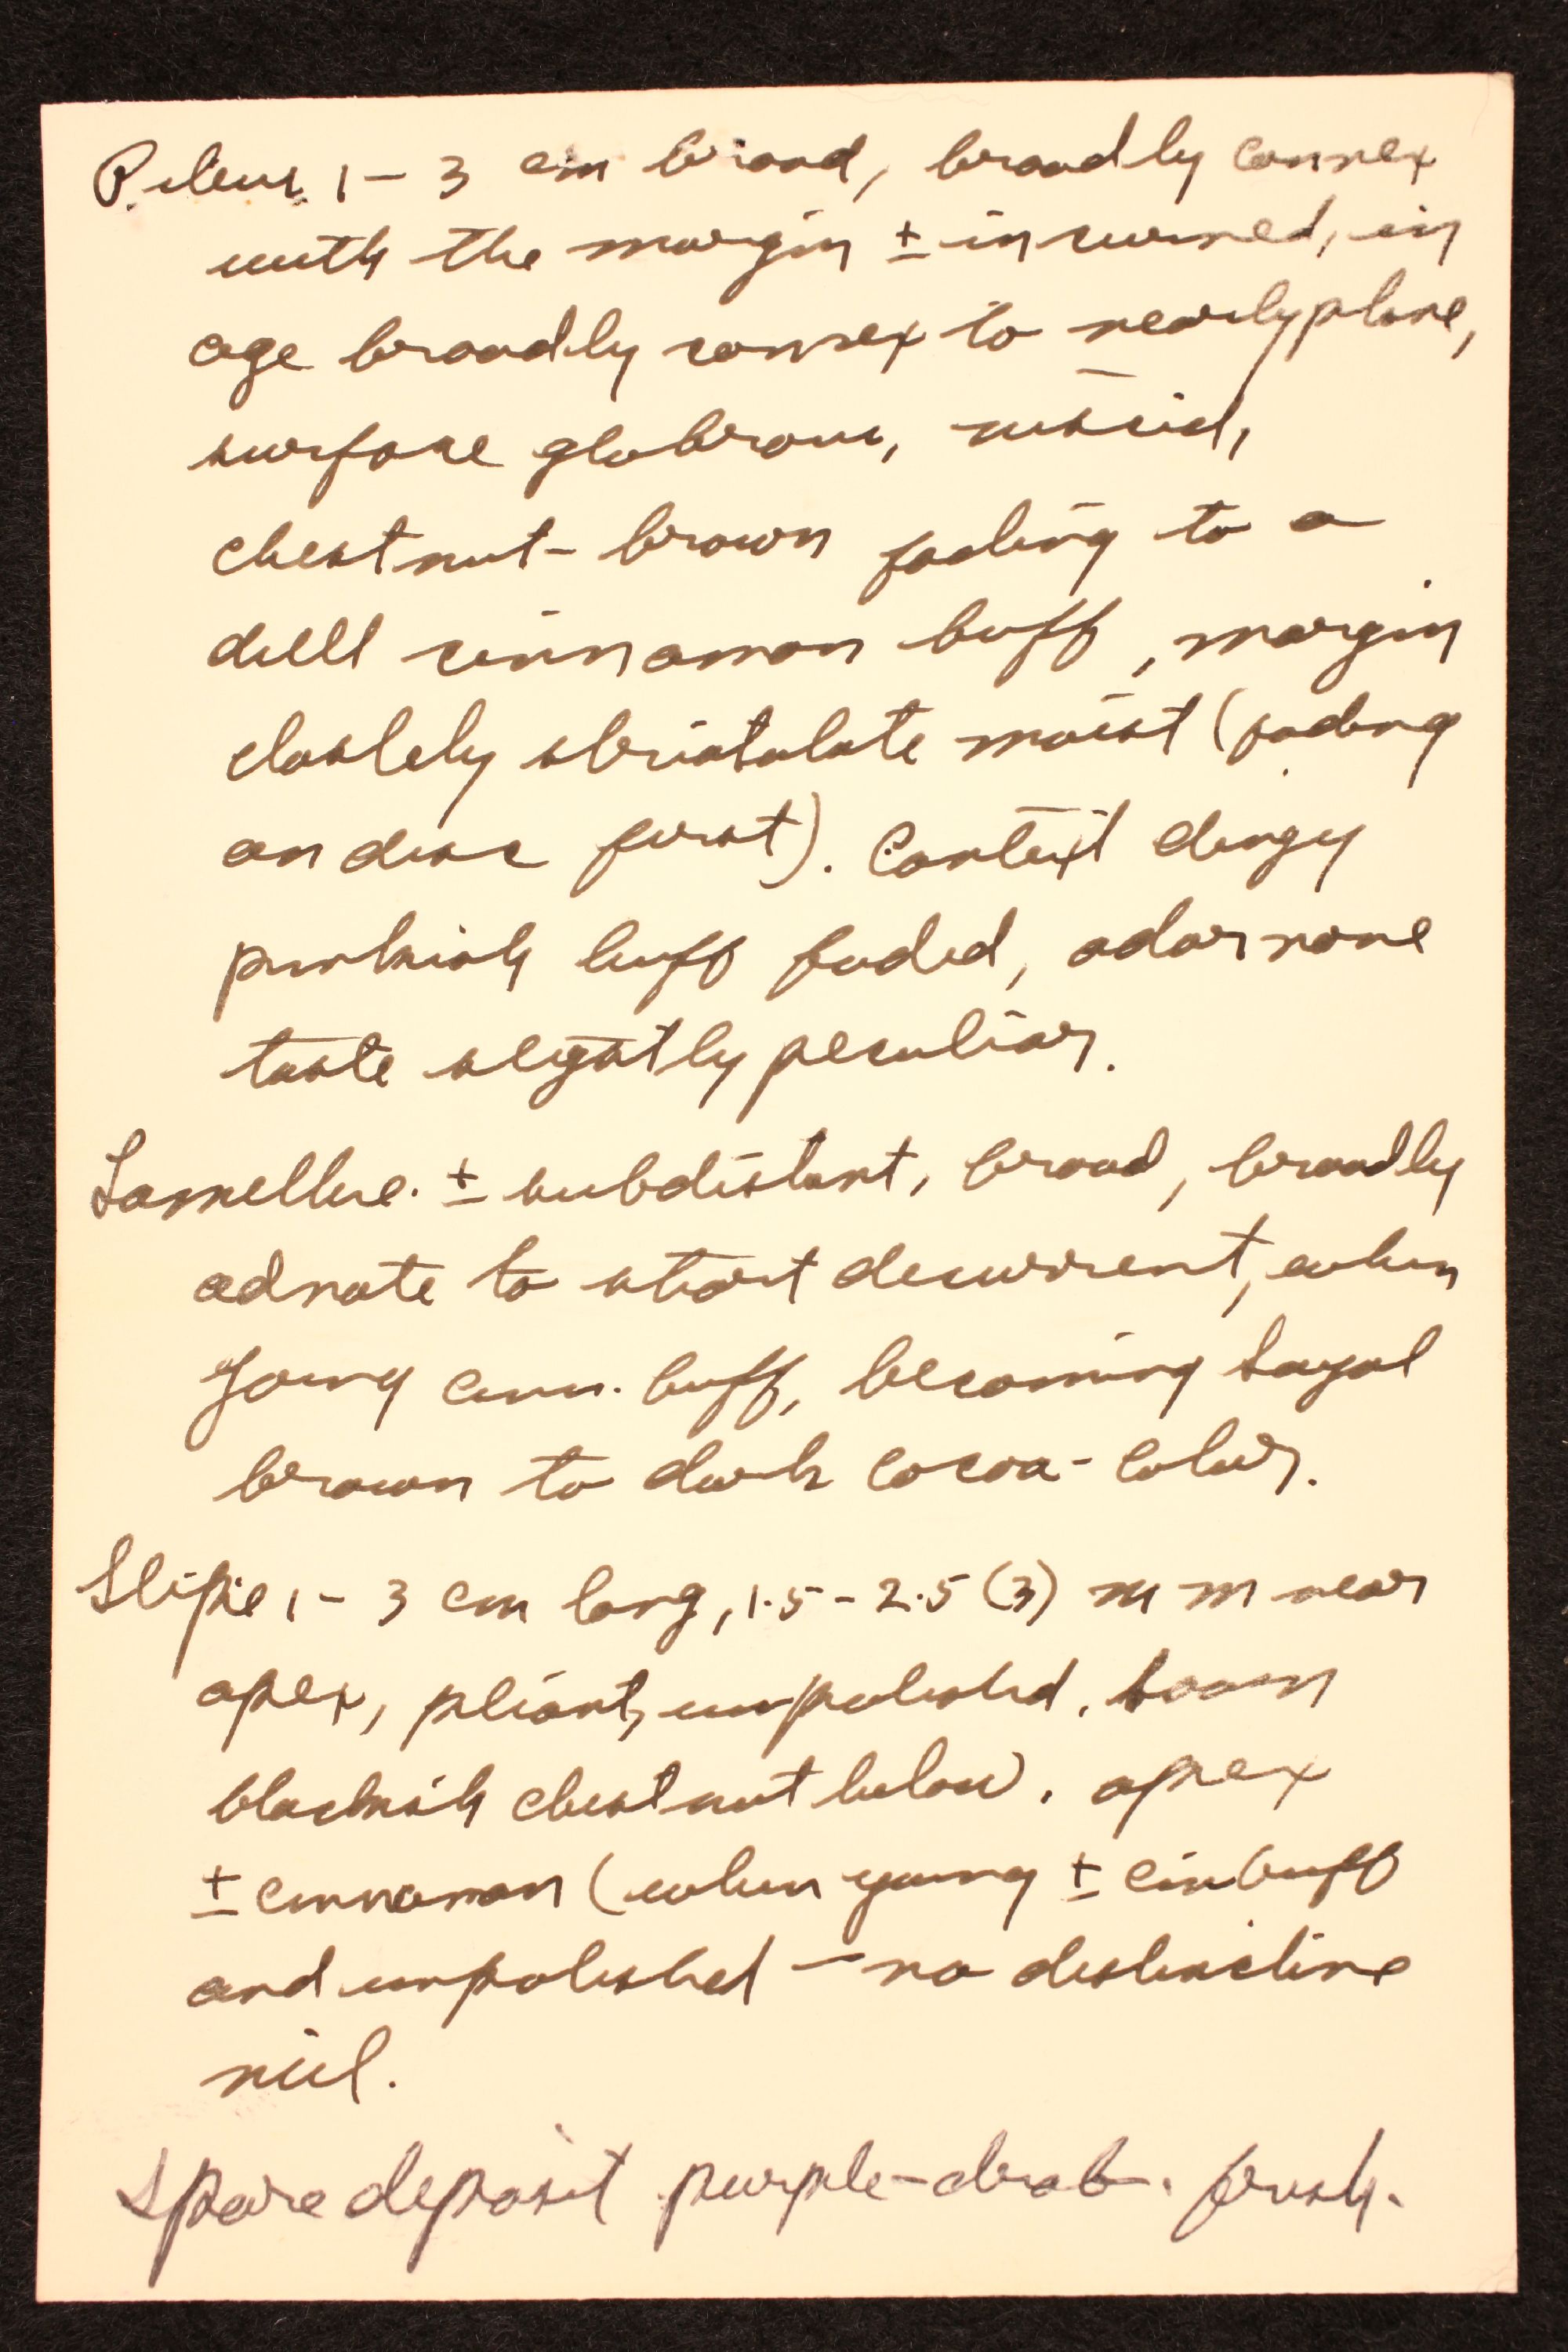 Pileus 1 - 3 cm broad, broadly convex
with the margin ± incurved, in
age broadly convex to nearly plane,
surface glabrous, viscid,
chestnut-brown fading to a
dull cinnamon buff, margin
closely striatulate moist (fading
on disc first). Context dingy
pinkish buff faded, odor none
taste slightly peculiar.
Lamellae ± subdistant, broad, broadly
adnate to short decurrent, when
young cinn. buff, becoming sayal
brown to dark cocoa-color.
Stipe 1 - 3 cm long, 1.5 - 2.5 (3) mm near
apex, pliant, unpolished, soon
blackish chestnut below. apex
± cinnamon (when young ± cin buff
and unpolished — no distinctive
veil.
Spore deposit purple-drab. fresh.